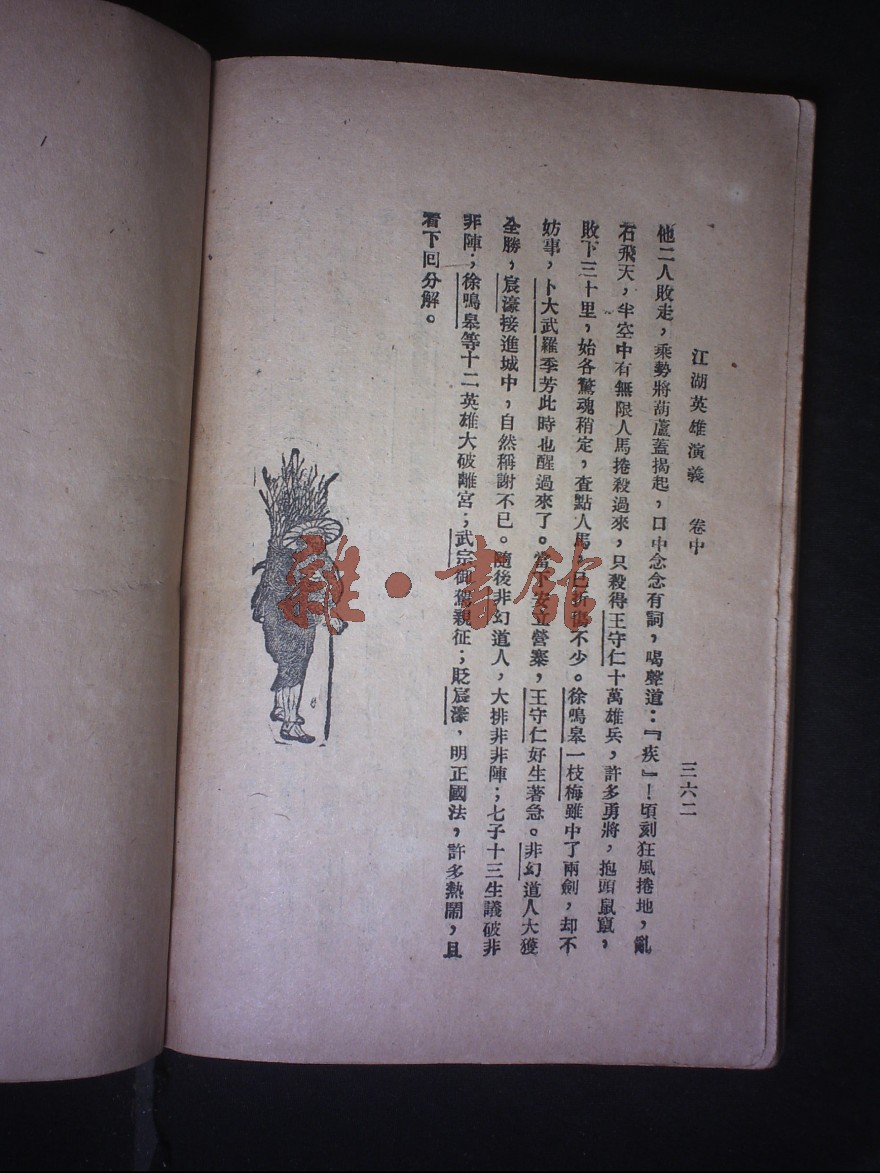 江湖英雄演義　卷中
三六二
他二人敗走，乘勢將葫蘆蓋揭起，口中念念有詞，喝聲道：『疾』！頃刻狂風捲地，亂
石飛天，半空中有無限人馬捲殺過來，只殺得王守仁十萬雄兵，許多勇將，抱頭鼠竄，
敗下三十里，始各驚魂稍定，查點人馬，已折傷不少。徐鳴皋一枝梅雖中了兩劍，却不
妨事，卜大武羅季芳此時也醒過來了。當下安立營寨，王守仁好生著急。非幻道人大獲
全勝，宸濠接進城中，自然稱謝不已。隨後非幻道人，大排非非陣；七子十三生議破非
非陣；徐鳴皋等十二英雄大破離宮；武宗御駕親征；貶宸濠，明正國法，許多熱鬧，且
看下回分解。
雜·書館